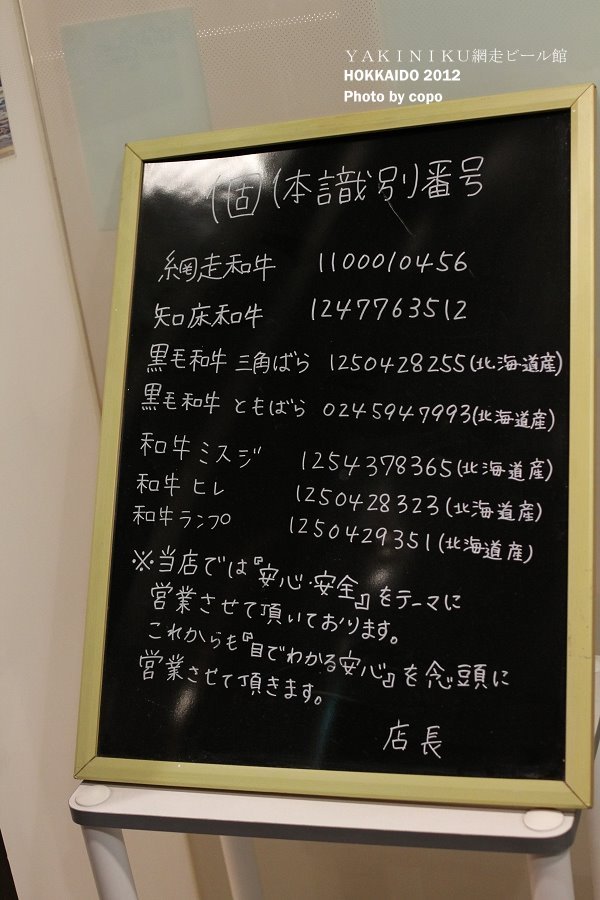 ＹＡＫＩＮＩＫＵ網走ビール館
HOKKAIDO 2012
Photo by copo
個体識別番号
網走和牛 1100010456
知床和牛 1247763512
黒毛和牛 三角ばら 1250428255(北海道産)
黒毛和牛 ともばら 0245947993(北海道産)
和牛 ミスジ 1254378365(北海道産)
和牛 ヒレ 1250428323(北海道産)
和牛ランプ 1250429351(北海道産)
※当店では『安心・安全』をテーマに
営業させて頂いております。
これからも『目でわかる安心』を念頭に
営業させて頂きます。
店長